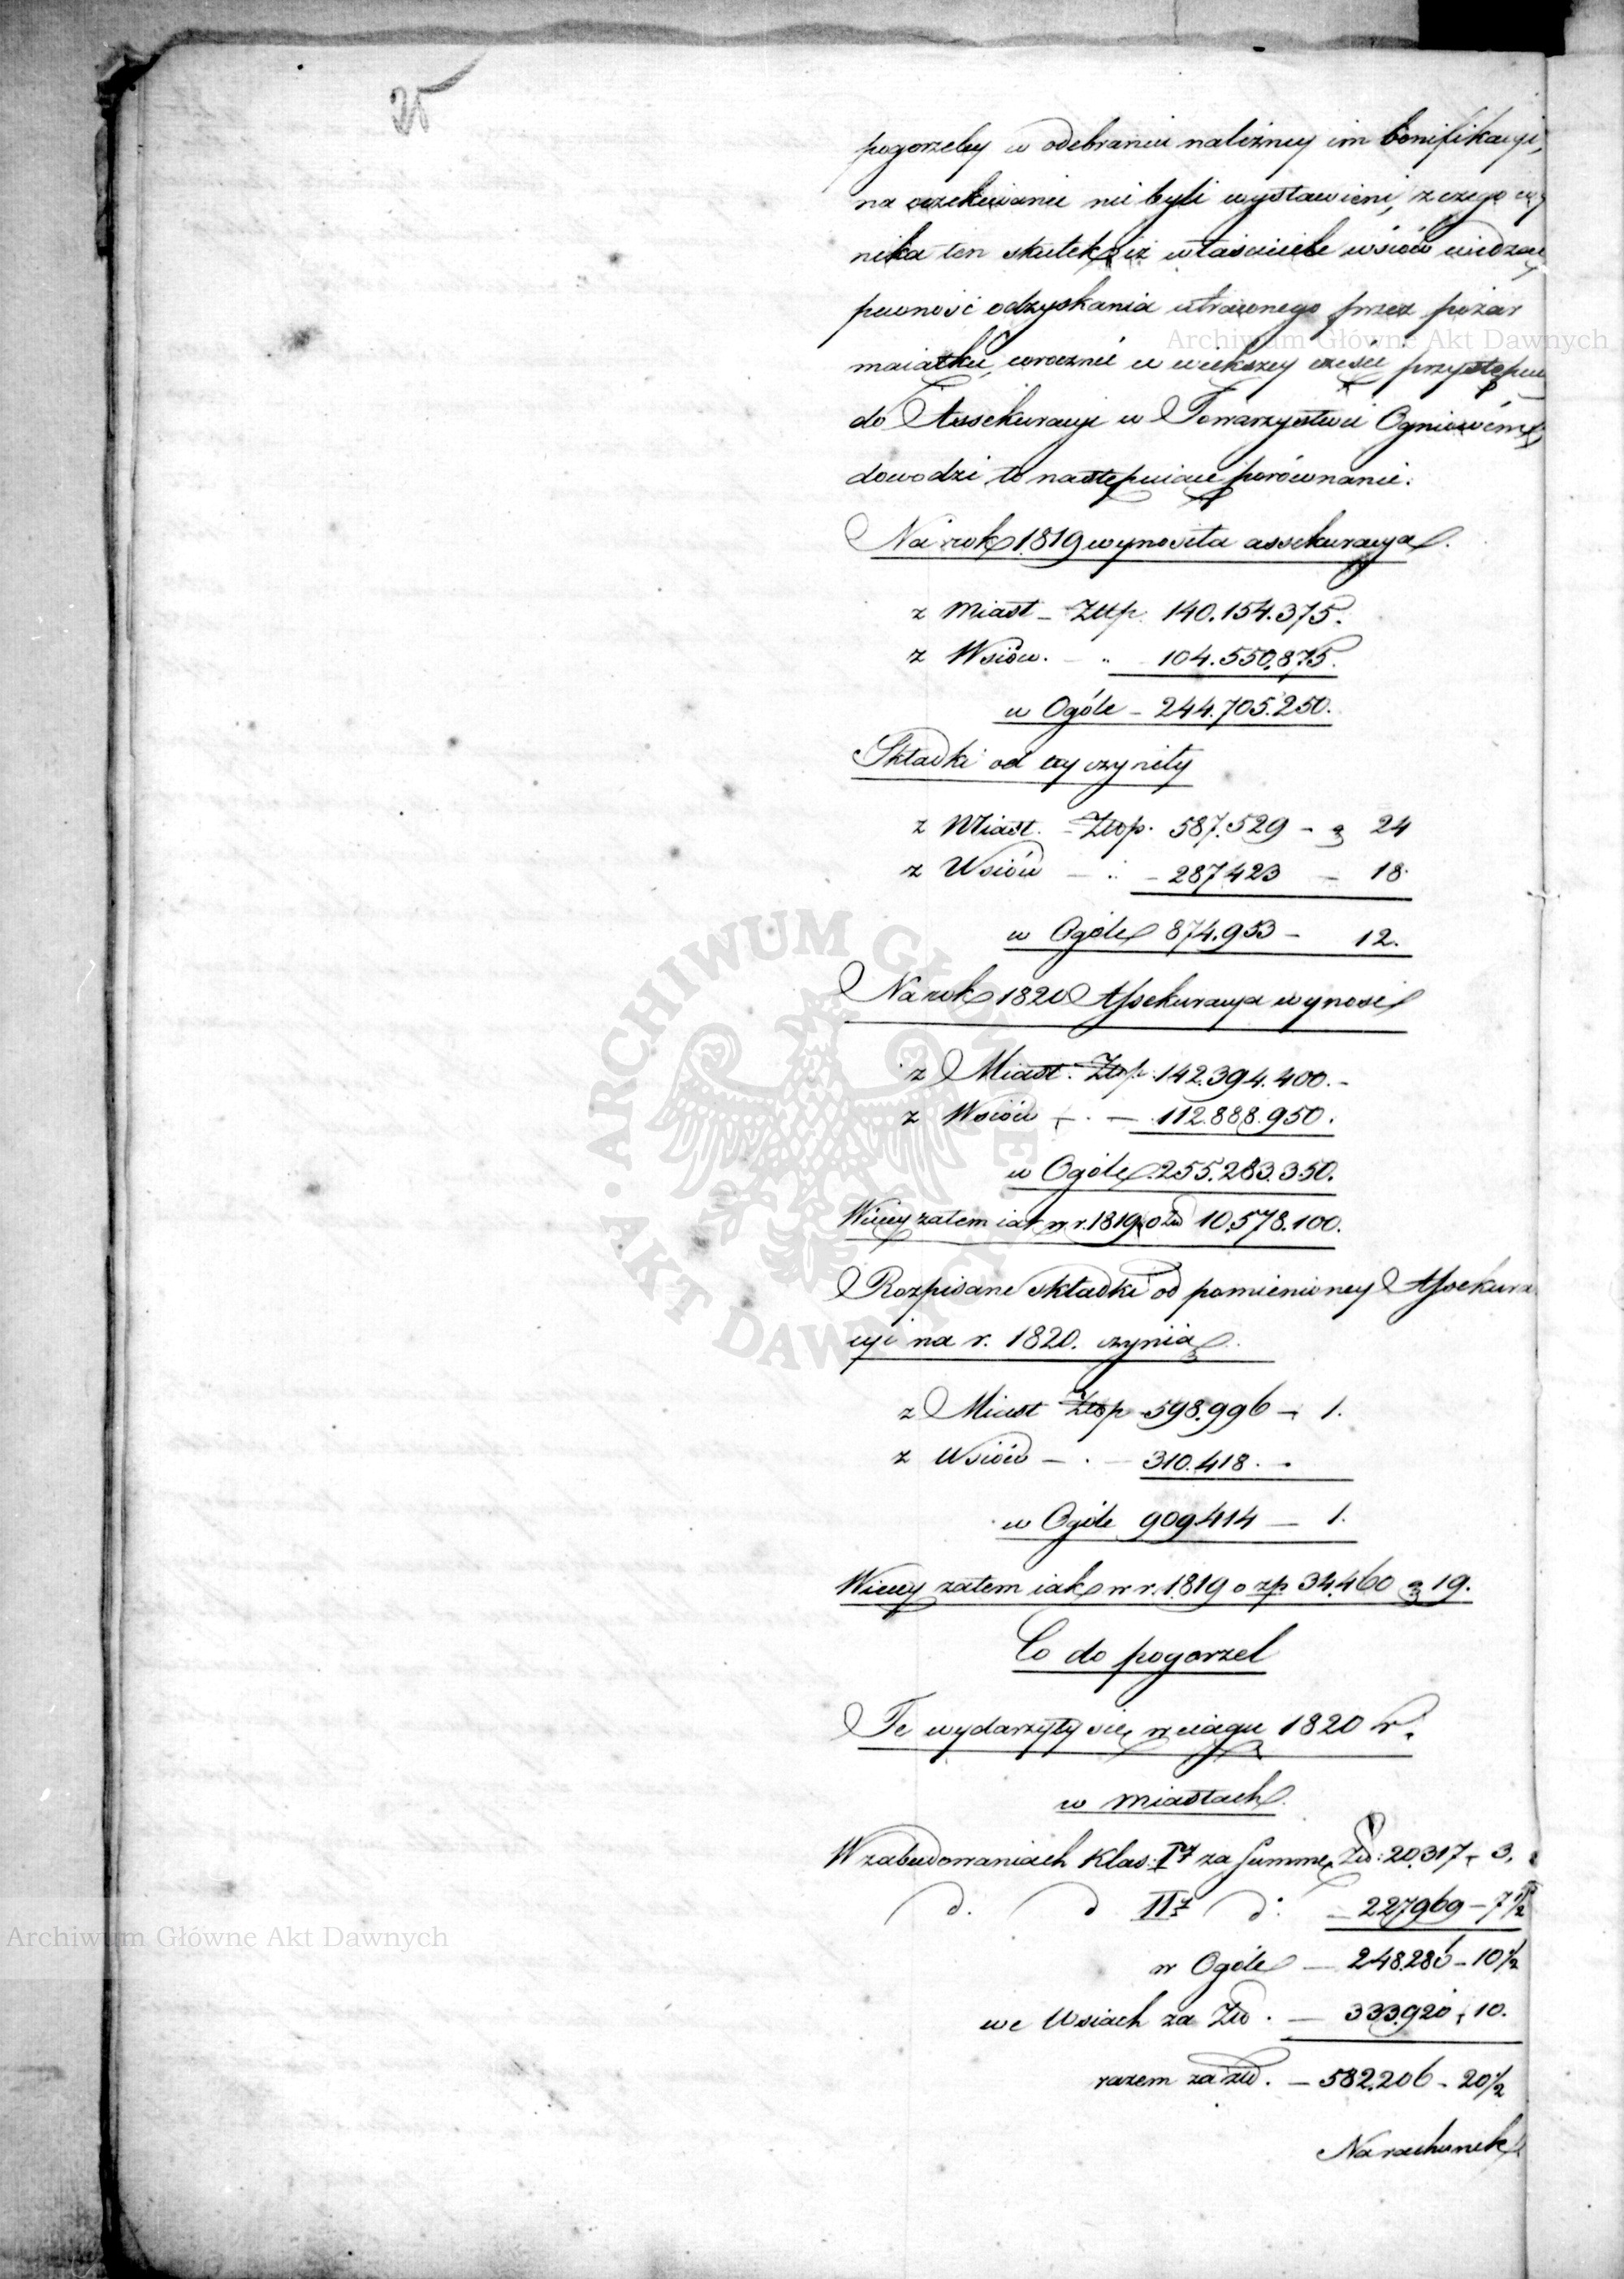 25
pogorzelcy w odebraniu należney im bonifikacyi,
na oczekiwanie nie byli wystawieni, z czego wy
nika ten skutek iż właściciele wsiów widząc
pewność odzyskania utraconego przez pożar
maiątku, corocznie w większey części przystępuią
do Assekuracyi w Towarzystwie Ogniowém,
dowodzi to następuiące porównanie.
Na rok 1819 wynosiła assekuracya
z Miast - Złłp. 140.154.375.
z Wsiów. - " - 104.550.875.
w Ogóle - 244.705.250.
Składki od tey czyniły
z Miast. - Złłp. 587.529 - g 24
z Wsiów - " - 287423 - 18.
w Ogóle 874.953 - 12.
Na rok 1820 Assekuracya wynosi
z Miast. Złłp. 142.394.400.-
z Wsiów - . - 112.888.950.
w Ogóle 255.283.350.
Więcey zatem iak w r. 1819 o Złł 10.578.100.
Rozpisane składki od pomienioney Assekura
cyi na r. 1820. czynią
z Miast Złłp 598.996 - 1.
z Wsiów - . - 310.418. -
w Ogóle 909414 - 1.
Więcey zatem iak w r. 1819 o zp 34.460 g 19.
Co do pogorzel
Te wydarzyły się w ciągu 1820 r.
w Miastach
W zabudowaniach Klas: Iy za Summę Złł: 20.317 - 3.
d. d IIy d: - 227969 - 7 1/2
w Ogóle - 248.286 - 10 1/2
we Wsiach za Złł. - 333.920 - 10.
razem za złł. - 582.206 - 20 1/2
Na rachunek
Archiwum Główne Akt Dawnych
Archiwum Główne Akt Dawnych
ARCHIWUM GŁÓWNE · AKT DAWNYCH ·